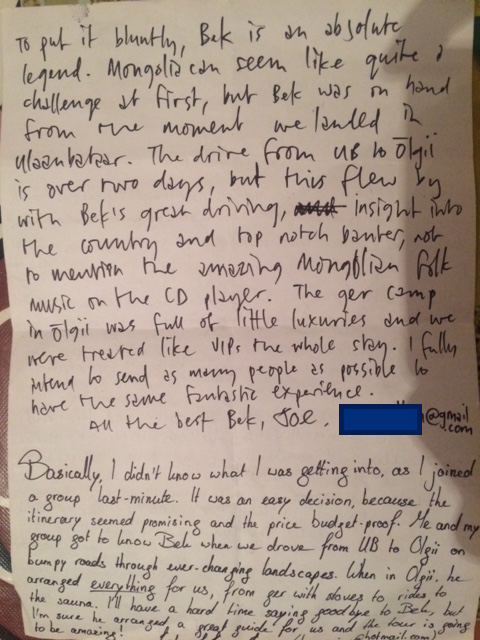 To put it bluntly, Bek is an absolute
legend. Mongolia can seem like quite a
challenge at first, but Bek was on hand
from the moment we landed in
Ulaanbataar. The drive from UB to Ölgii
is over two days, but this flew by
with Bek's great driving, insight into
the country and top notch banter, not
to mention the amazing Mongolian folk
music on the CD player. The ger camp
in Ölgii was full of little luxuries and we
were treated like VIPs the whole stay. I fully
intend to send as many people as possible to
have the same fantastic experience.
All the best Bek, Joe. @gmail
.com
Basically, I didn't know what I was getting into, as I joined
a group last-minute. It was an easy decision, because the
itinerary seemed promising and the price budget-proof. Me and my
group got to know Bek when we drove from UB to Olgii on
bumpy roads through ever-changing landscapes. When in Olgii, he
arranged everything for us, from ger with stoves to rides to
the sauna. I'll have a hard time saying goodbye to Bek, but
I'm sure he arranged a great guide for us and the tour is going
to be amazing! hotmail.com